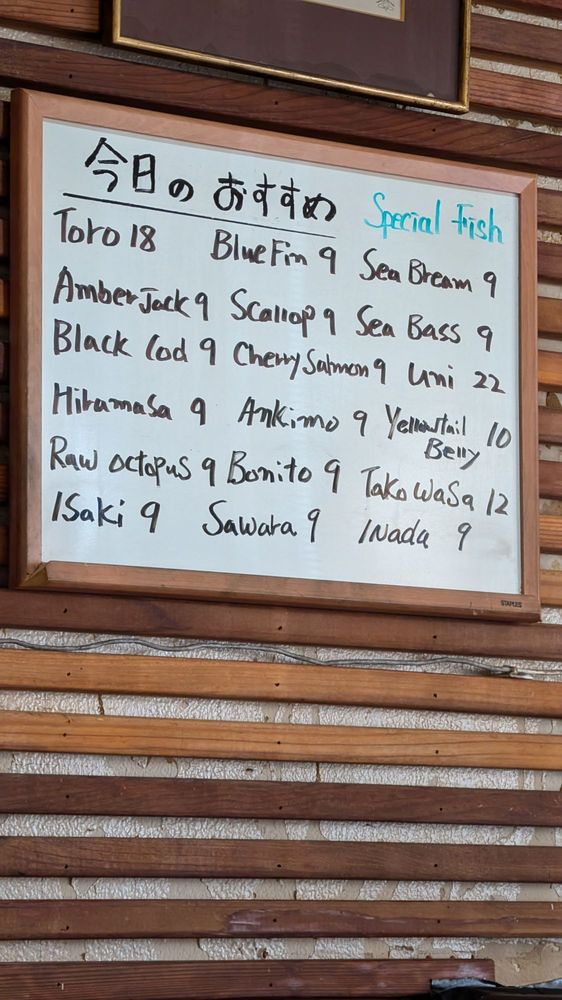 今日の おすすめ Special Fish
Toro 18 Blue Fin 9 Sea Bream 9
Amber Jack 9 Scallop 9 Sea Bass 9
Black Cod 9 Cherry Salmon 9 Uni 22
Hiramasa 9 Ankimo 9 Yellowtail Belly 10
Raw octopus 9 Bonito 9 Tako WaSa 12
ISaki 9 Sawara 9 INada 9
STAPLES